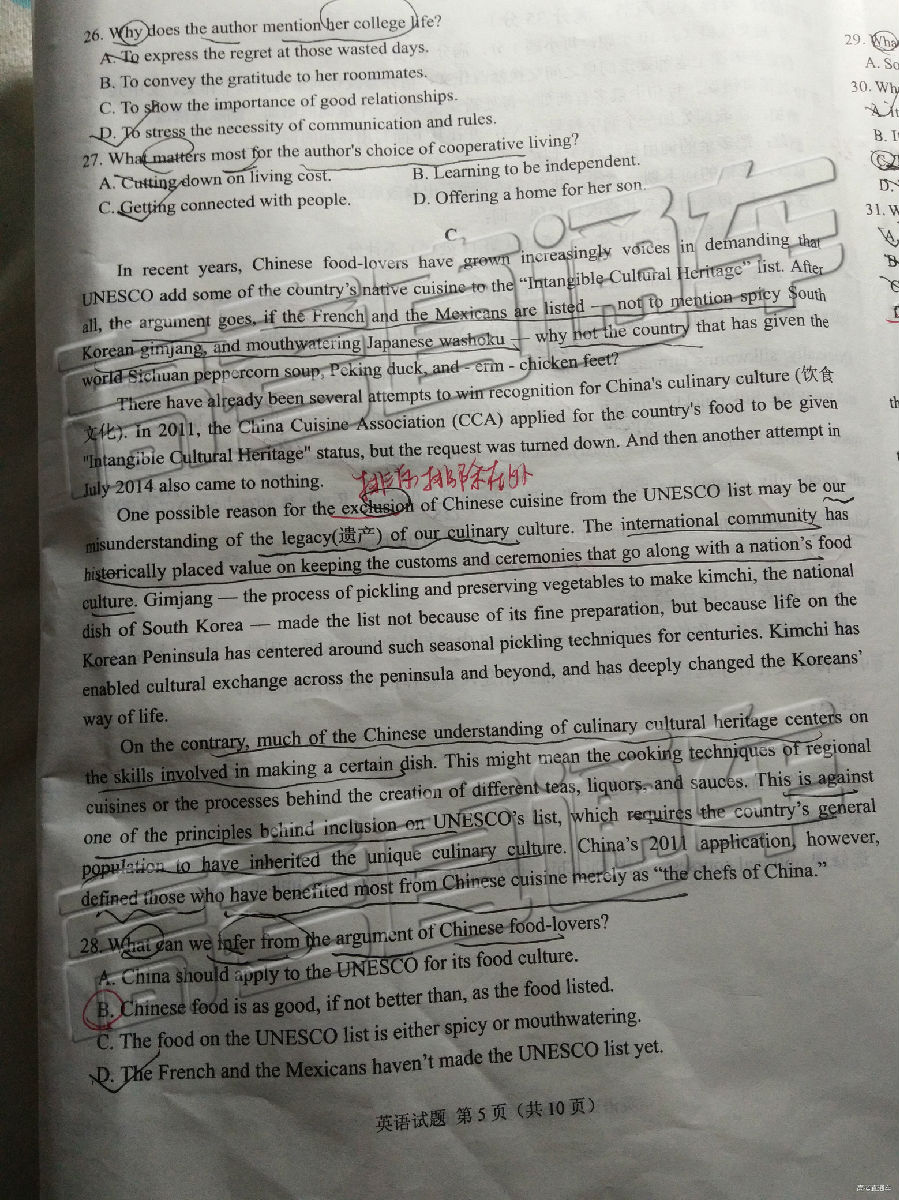 26. Why does the author mention her college life?
A. To express the regret at those wasted days.
B. To convey the gratitude to her roommates.
C. To show the importance of good relationships.
D. To stress the necessity of communication and rules.
27. What matters most for the author's choice of cooperative living?
A. Cutting down on living cost. B. Learning to be independent.
C. Getting connected with people. D. Offering a home for her son.
C
In recent years, Chinese food-lovers have grown increasingly voices in demanding that
UNESCO add some of the country's native cuisine to the “Intangible Cultural Heritage” list. After
all, the argument goes, if the French and the Mexicans are listed — not to mention spicy South
Korean gimjang, and mouthwatering Japanese washoku — why not the country that has given the
world Sichuan peppercorn soup, Peking duck, and - erm - chicken feet?
There have already been several attempts to win recognition for China's culinary culture (饮食
文化). In 2011, the China Cuisine Association (CCA) applied for the country's food to be given
"Intangible Cultural Heritage" status, but the request was turned down. And then another attempt in
July 2014 also came to nothing.
排除在外
One possible reason for the exclusion of Chinese cuisine from the UNESCO list may be our
misunderstanding of the legacy(遗产) of our culinary culture. The international community has
historically placed value on keeping the customs and ceremonies that go along with a nation's food
culture. Gimjang — the process of pickling and preserving vegetables to make kimchi, the national
dish of South Korea — made the list not because of its fine preparation, but because life on the
Korean Peninsula has centered around such seasonal pickling techniques for centuries. Kimchi has
enabled cultural exchange across the peninsula and beyond, and has deeply changed the Koreans'
way of life.
On the contrary, much of the Chinese understanding of culinary cultural heritage centers on
the skills involved in making a certain dish. This might mean the cooking techniques of regional
cuisines or the processes behind the creation of different teas, liquors, and sauces. This is against
one of the principles behind inclusion on UNESCO's list, which requires the country's general
population to have inherited the unique culinary culture. China's 2011 application, however,
defined those who have benefited most from Chinese cuisine merely as “the chefs of China.”
28. What can we infer from the argument of Chinese food-lovers?
A. China should apply to the UNESCO for its food culture.
B. Chinese food is as good, if not better than, as the food listed.
C. The food on the UNESCO list is either spicy or mouthwatering.
D. The French and the Mexicans haven't made the UNESCO list yet.
英语试题 第 5 页（共 10 页）
29. Wha
A. So
30. Wh
A. It
B. I
C
D.
31. W
A
B
C
th
高考直通车